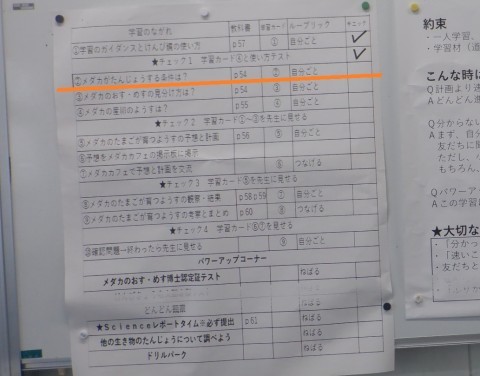 学習のながれ 教科書 学習カード ルーブリック チェック
①学習のガイダンスとけんび鏡の使い方 p57 ① 自分ごと ✓
★チェック1 学習カード①と使い方テスト ✓
②メダカがたんじょうする条件は? p54 ② 自分ごと
③メダカのおす・めすの見分け方は? p54 ③ 自分ごと
p55 ④ 自分ごと
★チェック2 学習カード②~③を先生に見せる
⑤メダカのたまごが育つようすの予想と計画 p56 自分ごと
⑥予想をメダカカフェの掲示板に掲示
⑦メダカカフェで予想と計画を交流 つなげる
★チェック3 を先生に見せる
⑧メダカのたまごが育つようすの観察・結果 p58 p59 ⑦ 自分ごと
⑨メダカのたまごが育つようすの考察とまとめ p60 ⑧ つなげる
★チェック4 学習カード⑥⑦を見せる
⑩確認問題→終わったら先生に見せる ⑨ 自分ごと
パワーアップコーナー
メダカのおす・めす博士認定証テスト ねばる
どんどん ねばる
★Scienceレポートタイム※必ず提出 p61 ねばる
他の生き物のたんじょうについて調べよう ねばる
ドリルパーク ねばる
約束
・一人学習、
・学習材(道
こんな時は
Q計画より速
Aどんどん進
Q分からない
Aまず、自分
友だちに聞
ただし、
もちろん、
Qパワーアッ
Aこの学習
★大切な
・「分かっ
・「速いこ
・友だちと